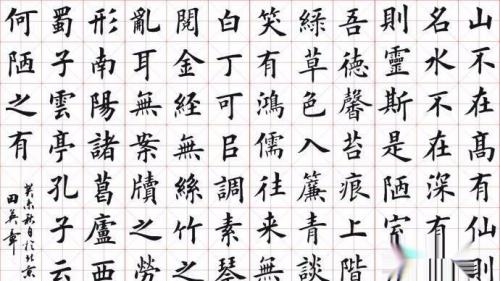 山不在高有仙則
名水不在深有
則靈斯是陋室
吾德馨苔痕上階
綠草色入簾青談
笑有鴻儒往來無
白丁可㠯調素琴
閱金經無絲竹之
亂耳無案牘之勞
形南陽諸葛廬西
蜀子雲亭孔子云
何陋之有
癸未秋日於北京
田英章